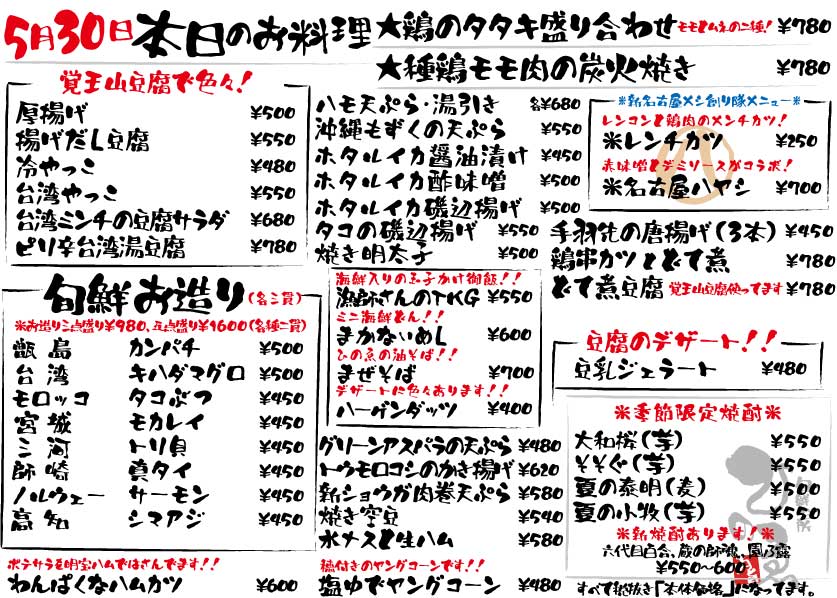 5月30日 本日のお料理
★鶏のタタキ盛り合わせ モモとムネの二種! ¥780
★種鶏モモ肉の炭火焼き ¥780
覚王山豆腐で色々!
厚揚げ ¥500
揚げだし豆腐 ¥550
冷やっこ ¥480
台湾やっこ ¥550
台湾ミンチの豆腐サラダ ¥680
ピリ辛台湾湯豆腐 ¥780
旬鮮お造り(各三貫)
※お造り三点盛り¥980、五点盛り¥1600(各種二貫)
甑島 カンパチ ¥500
台湾 キハダマグロ ¥500
モロッコ タコぶつ ¥450
宮城 モカレイ ¥450
三河 トリ貝 ¥450
師崎 真タイ ¥450
ノルウェー サーモン ¥450
高知 シマアジ ¥450
ポテサラを明宝ハムではさんでます!!
わんぱくなハムカツ ¥600
ハモ天ぷら・湯引き 各¥680
沖縄もずくの天ぷら ¥550
ホタルイカ醤油漬け ¥450
ホタルイカ酢味噌 ¥500
ホタルイカ磯辺揚げ ¥500
タコの磯辺揚げ ¥550
焼き明太子 ¥500
海鮮入りの玉子かけ御飯!!
漁師さんのTKG ¥550
ミニ海鮮どん!!
まかないめし ¥600
ひの魚の油そば!!
まぜそば ¥700
デザートに色々あります!!
ハーゲンダッツ ¥400
グリーンアスパラの天ぷら ¥480
トウモロコシのかき揚げ ¥620
新ショウガ肉巻天ぷら ¥580
焼き空豆 ¥540
水ナスと生ハム ¥580
穂付きのヤングコーンです!!
塩ゆでヤングコーン ¥480
※新名古屋メシ創り隊メニュー※
レンコンと鶏肉のメンチカツ!
※レンチカツ ¥250
赤味噌とデミソースがコラボ!
※名古屋ハヤシ ¥700
手羽先の唐揚げ(3本) ¥450
鶏串カツとどて煮 ¥780
どて煮豆腐 覚王山豆腐使ってます ¥780
豆腐のデザート!!
豆乳ジェラート ¥480
※季節限定焼酎※
大和桜(芋) ¥550
そそぐ(芋) ¥550
夏の泰明(麦) ¥500
夏の小牧(芋) ¥550
※新焼酎あります!※
六代目百合、蔵の師魂、園乃露
¥550～600
すべて税抜き「本体価格」になってます。